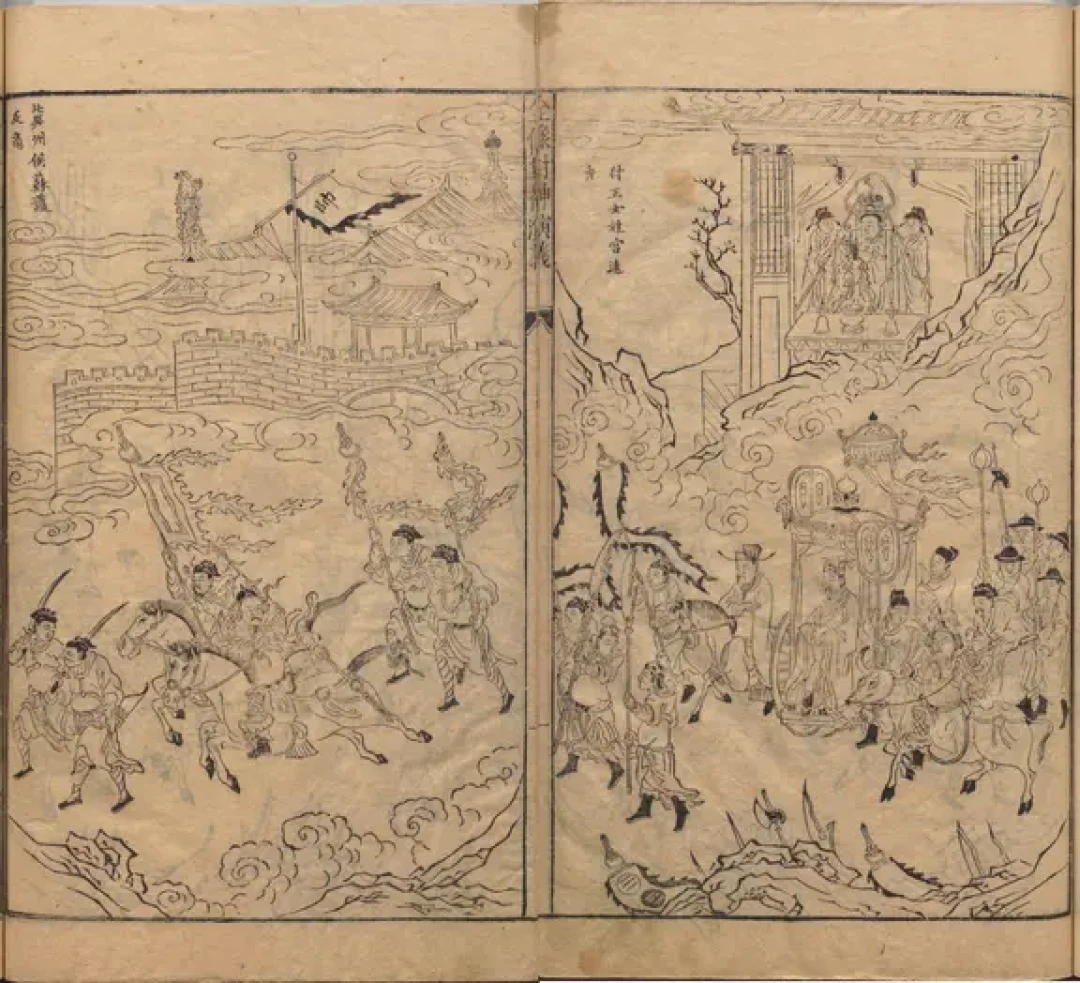 紂王女媧宮進
香
封神演義
帥
冀州侯蘇護
反商